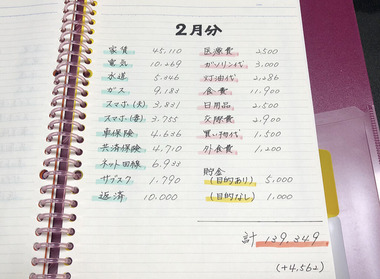 2月分
家賃 45,110
電気 10,269
水道 5,046
ガス 9,183
スマホ(夫) 3,831
スマホ(妻) 3,755
車保険 4,636
共済保険 4,710
ネット回線 6,933
サブスク 1,790
返済 10,000
医療費 2500
ガソリン代 3,000
灯油代 2,286
食費 11,900
日用品 2,500
交際費 2,900
買い物代 1,500
外食費 1,200
貯金
(目的あり) 5,000
(目的なし) 1,000
計 139,349
(+4,562)